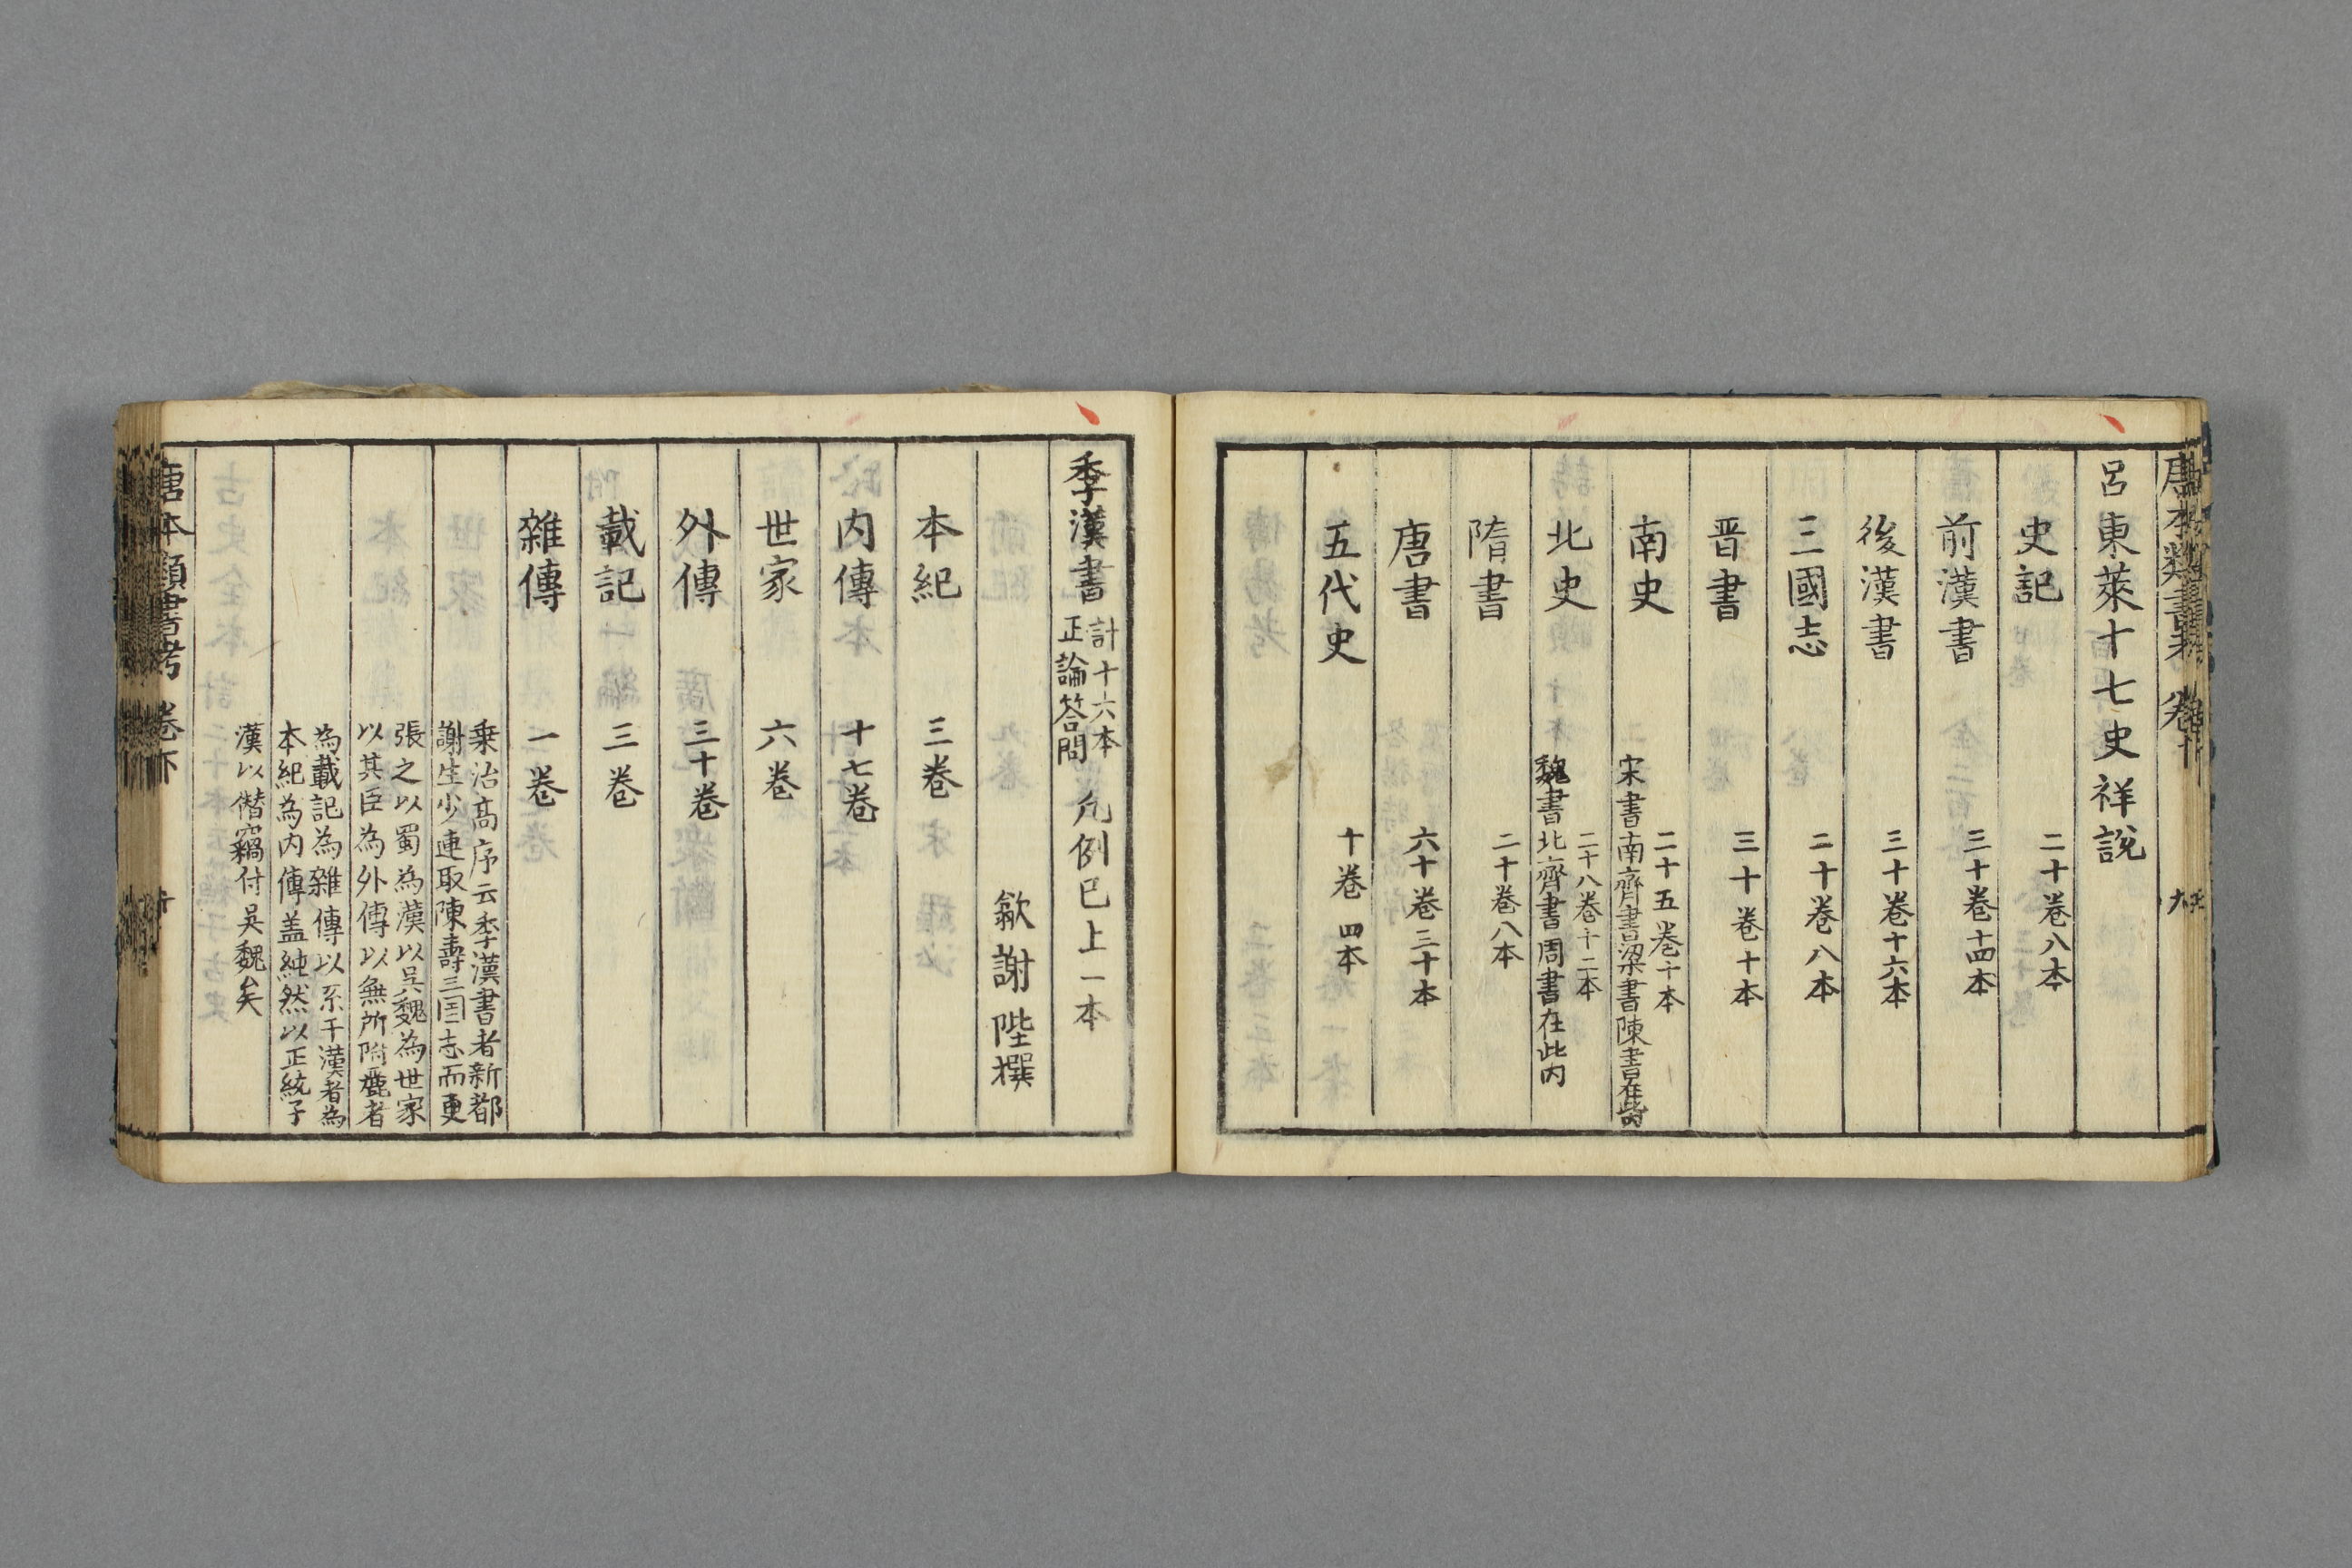 呂東萊十七史祥說
史記 二十卷八本
前漢書 三十卷十四本
後漢書 三十卷十六本
三國志 二十卷八本
晋書 三十卷十本
南史 二十五卷十本
宋書南齊書梁書陳書在此內
北史 二十八卷十二本
魏書北齊書周書在此内
隋書 二十卷八本
唐書 六十卷三十本
五代史 十卷四本
季漢書 計十六本
正論答問 凢例已上一本
歙謝陛撰
本紀 三卷
内傳 十七卷
世家 六卷
外傳 三十卷
載記 三卷
雜傳 一卷
乗治髙序云季漢書者新都
謝生少連取陳壽三国志而更
張之以蜀為漢以吳魏為世家
以其臣為外傳以無所附麗者
為載記為雜傳以系千漢者為
本紀為内傳盖純然以正統子
漢以僣竊付吳魏矣
唐本類書考 卷下